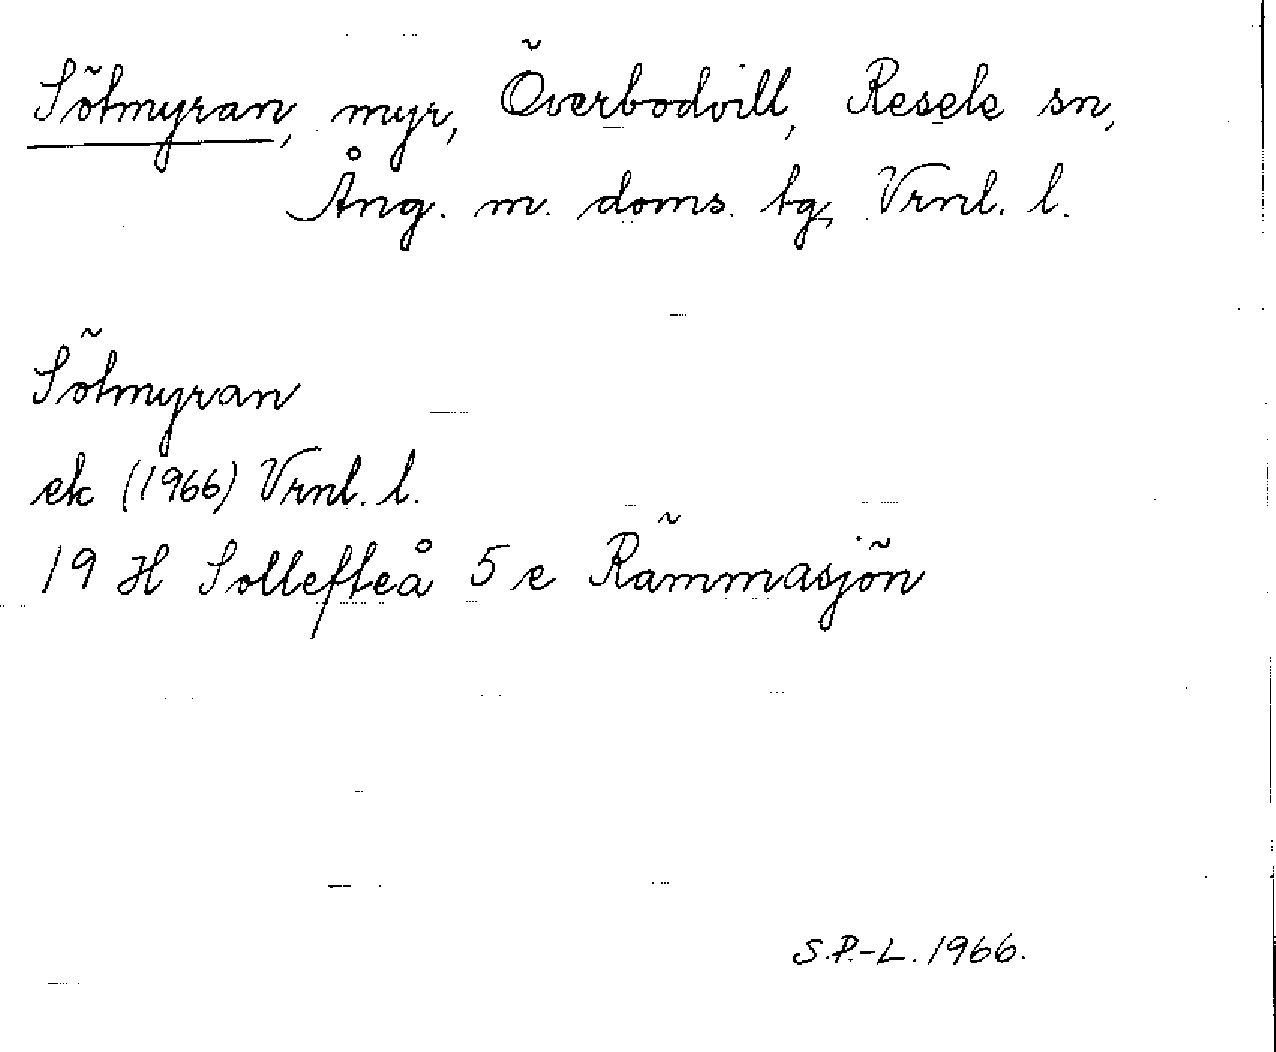 Sötmyran, myr, Överbodvill, Resele sn,
Ång. m. doms. tg, Vrnl. l.
Sötmyran
ek (1966) Vrnl. l.
19 H Sollefteå 5 e Rämmasjön
S.P.-L. 1966.